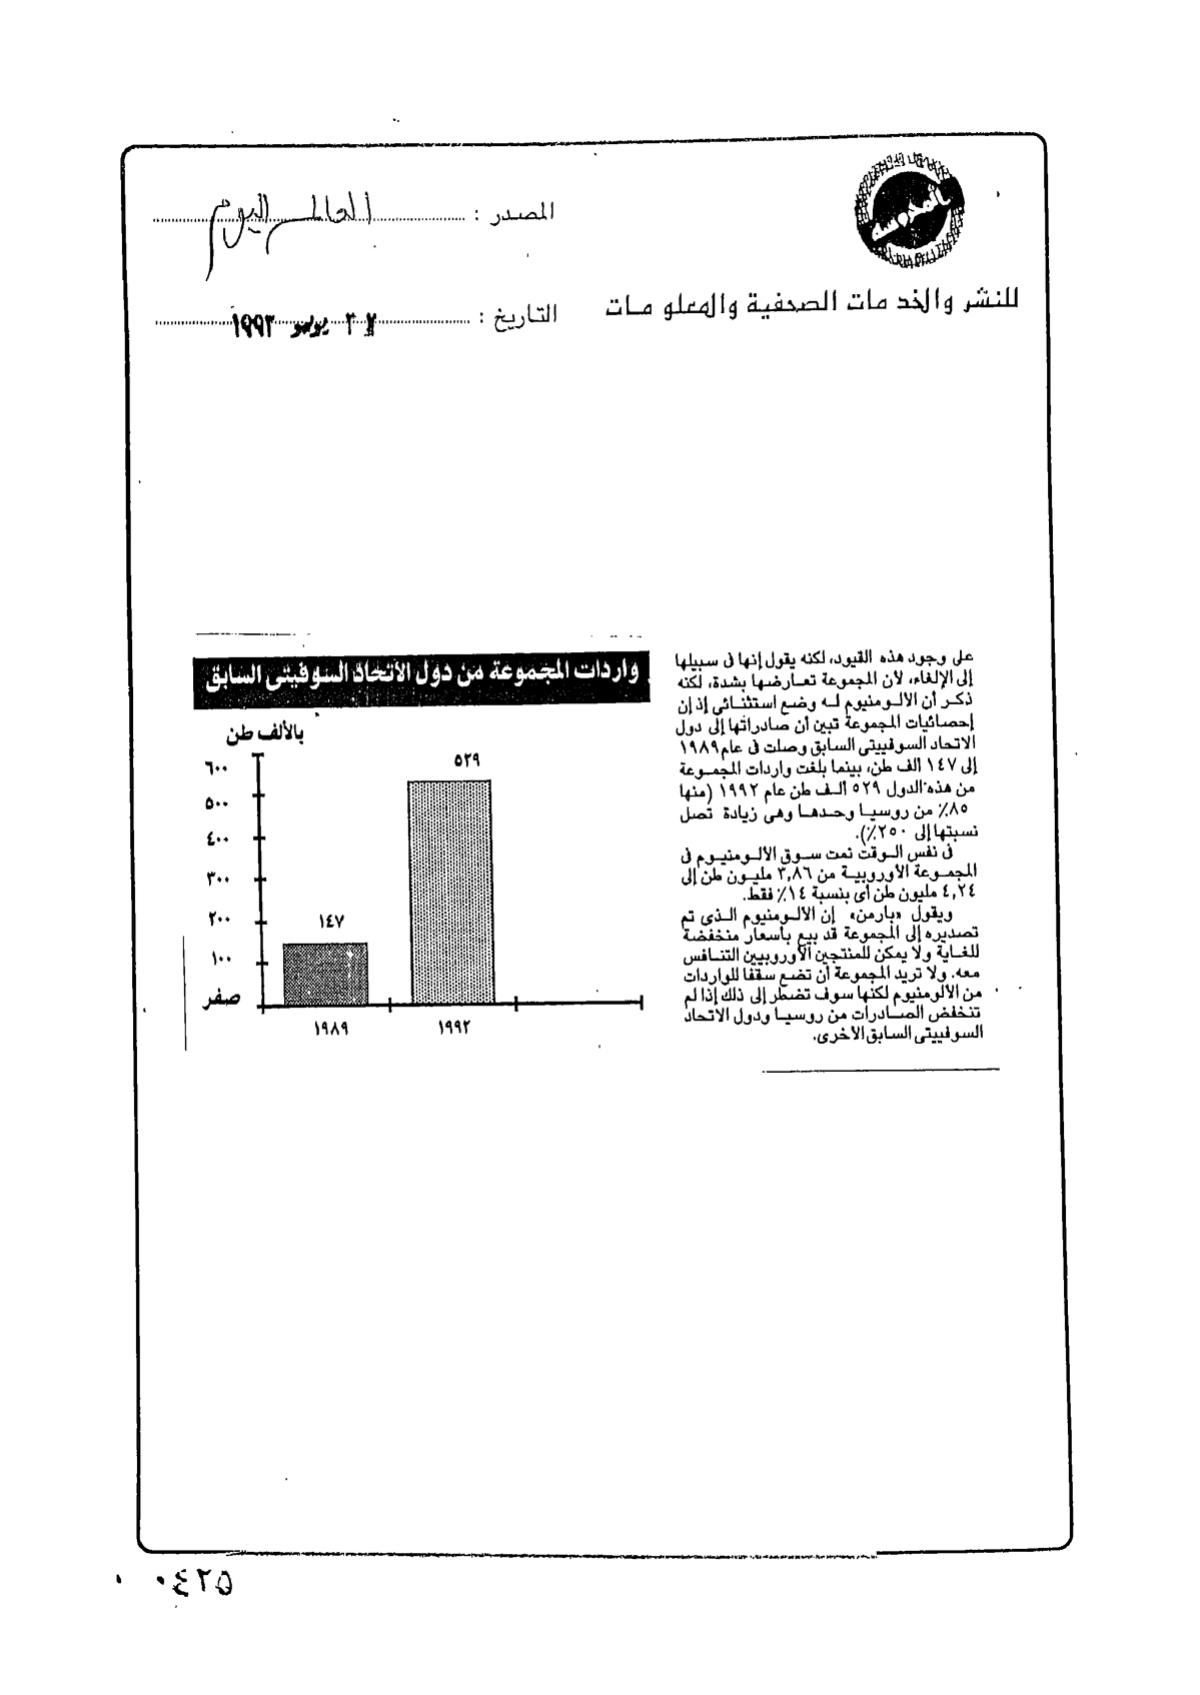 المصدر : العالم اليوم
للنشر والخد مات الصحفية والمعلو مات
التاريخ : يوليو ١٩٩٣
على وجود هذه القيود، لكنه يقول إنها فى سبيلها
إلى الإلغاء، لأن المجموعة تعارضها بشدة، لكنه
ذكر أن الألومنيوم له وضع استثنائى إذ إن
إحصائيات المجموعة تبين أن صادراتها إلى دول
الاتحاد السوفييتى السابق وصلت فى عام ١٩٨٩
إلى ١٤٧ ألف طن، بينما بلغت واردات المجموعة
من هذه الدول ٥٢٩ ألف طن عام ١٩٩٢ (منها
٨٥٪ من روسيا وحدها وهى زيادة تصل
نسبتها إلى ٢٥٠٪).
فى نفس الوقت نمت سوق الألومنيوم فى
المجموعة الأوروبية من ٣,٨٦ مليون طن إلى
٤,٢٤ مليون طن أى بنسبة ١٤٪ فقط.
ويقول «بارمن» إن الألومنيوم الذى تم
تصديره إلى المجموعة قد بيع بأسعار منخفضة
للغاية ولا يمكن للمنتجين الأوروبيين التنافس
معه. ولا تريد المجموعة أن تضع سقفا للواردات
من الألومنيوم لكنها سوف تضطر إلى ذلك إذا لم
تنخفض الصادرات من روسيا ودول الاتحاد
السوفييتى السابق الأخرى.
واردات المجموعة من دول الأتحاد السوفيتى السابق
بالألف طن
٦٠٠
٥٠٠
٤٠٠
٣٠٠
٢٠٠
١٠٠
صفر
٥٢٩
١٤٧
١٩٨٩
١٩٩٢
٠٤٢٥